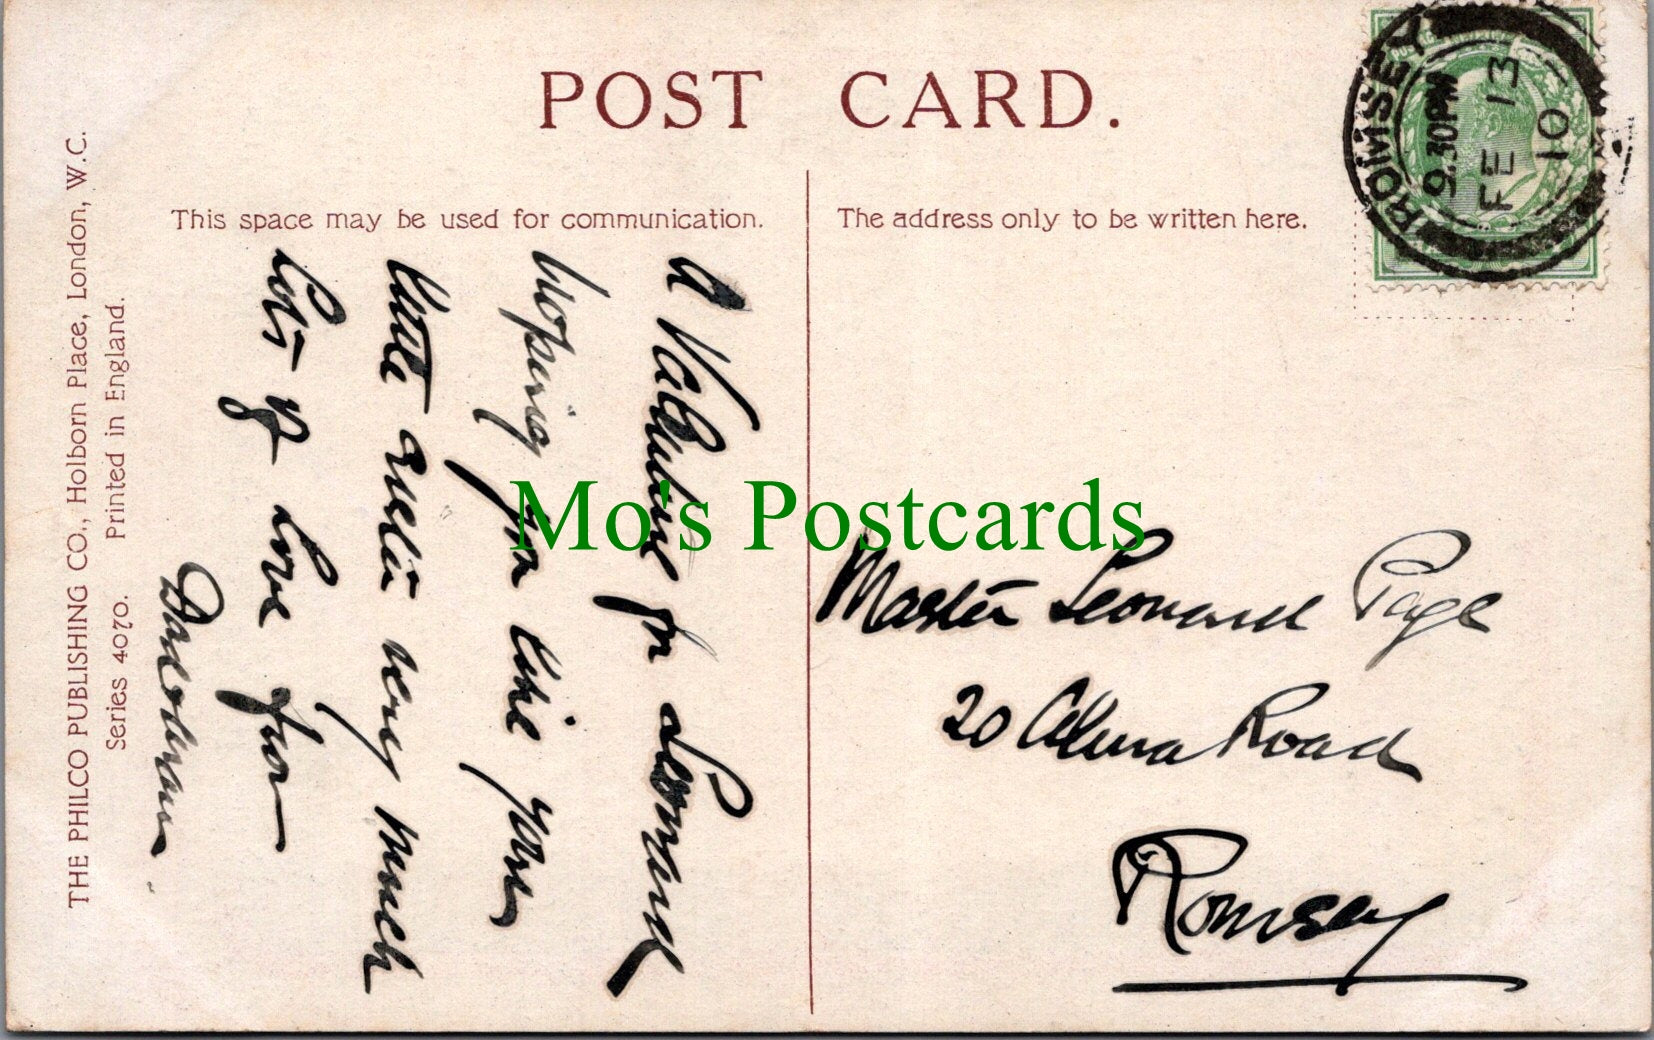 POST CARD.
This space may be used for communication.
The address only to be written here.
ROMSEY
9.30PM
FE 13
10
A Valentine for Leonard
hoping you like your
little sister very much
Lots of love from
THE PHILCO PUBLISHING CO., Holborn Place, London, W.C.
Series 4070. Printed in England.
Mo's Postcards
Master Leonard Page
20 Alma Road
Romsey